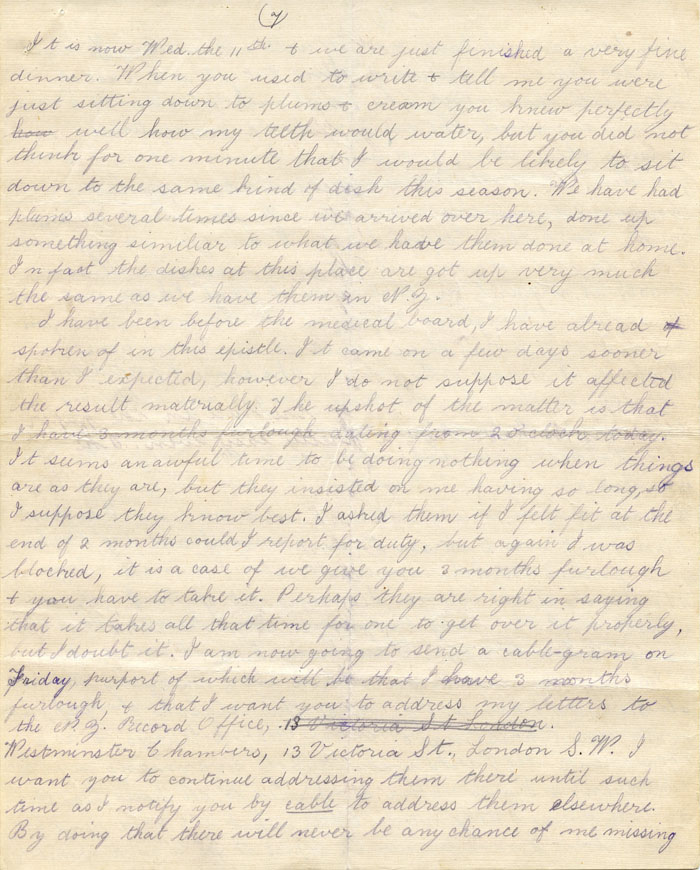 (7
It is now Wed. the 11th & we are just finished a very fine
dinner. When you used to write & tell me you were
just sitting down to plums & cream you knew perfectly
how well how my teeth would water, but you did not
think for one minute that I would be likely to sit
down to the same kind of dish this season. We have had
plums several times since we arrived over here, done up
something similiar to what we have them done at home.
In fact the dishes at this place are got up very much
the same as we have them in N.Z.
I have been before the medical board, I have alread
spoken of in this epistle. It came on a few days sooner
than I expected, however I do not suppose it affected
the result materially. The upshot of the matter is that
I have 3 months furlough dating from 2 o'clock today.
It seems an awful time to be doing nothing when things
are as they are, but they insisted on me having so long, so
I suppose they know best. I asked them if I felt fit at the
end of 2 months could I report for duty, but again I was
blocked, it is a case of we give you 3 months furlough
& you have to take it. Perhaps they are right in saying
that it takes all that time for one to get over it properly,
but I doubt it. I am now going to send a cable-gram on
Friday, purport of which will be that I have 3 months
furlough, & that I want you to address my letters to
the N.Z. Record Office, 13 Victoria St London.
Westminster Chambers, 13 Victoria St., London S.W. I
want you to continue addressing them there until such
time as I notify you by cable to address them elsewhere.
By doing that there will never be any chance of me missing